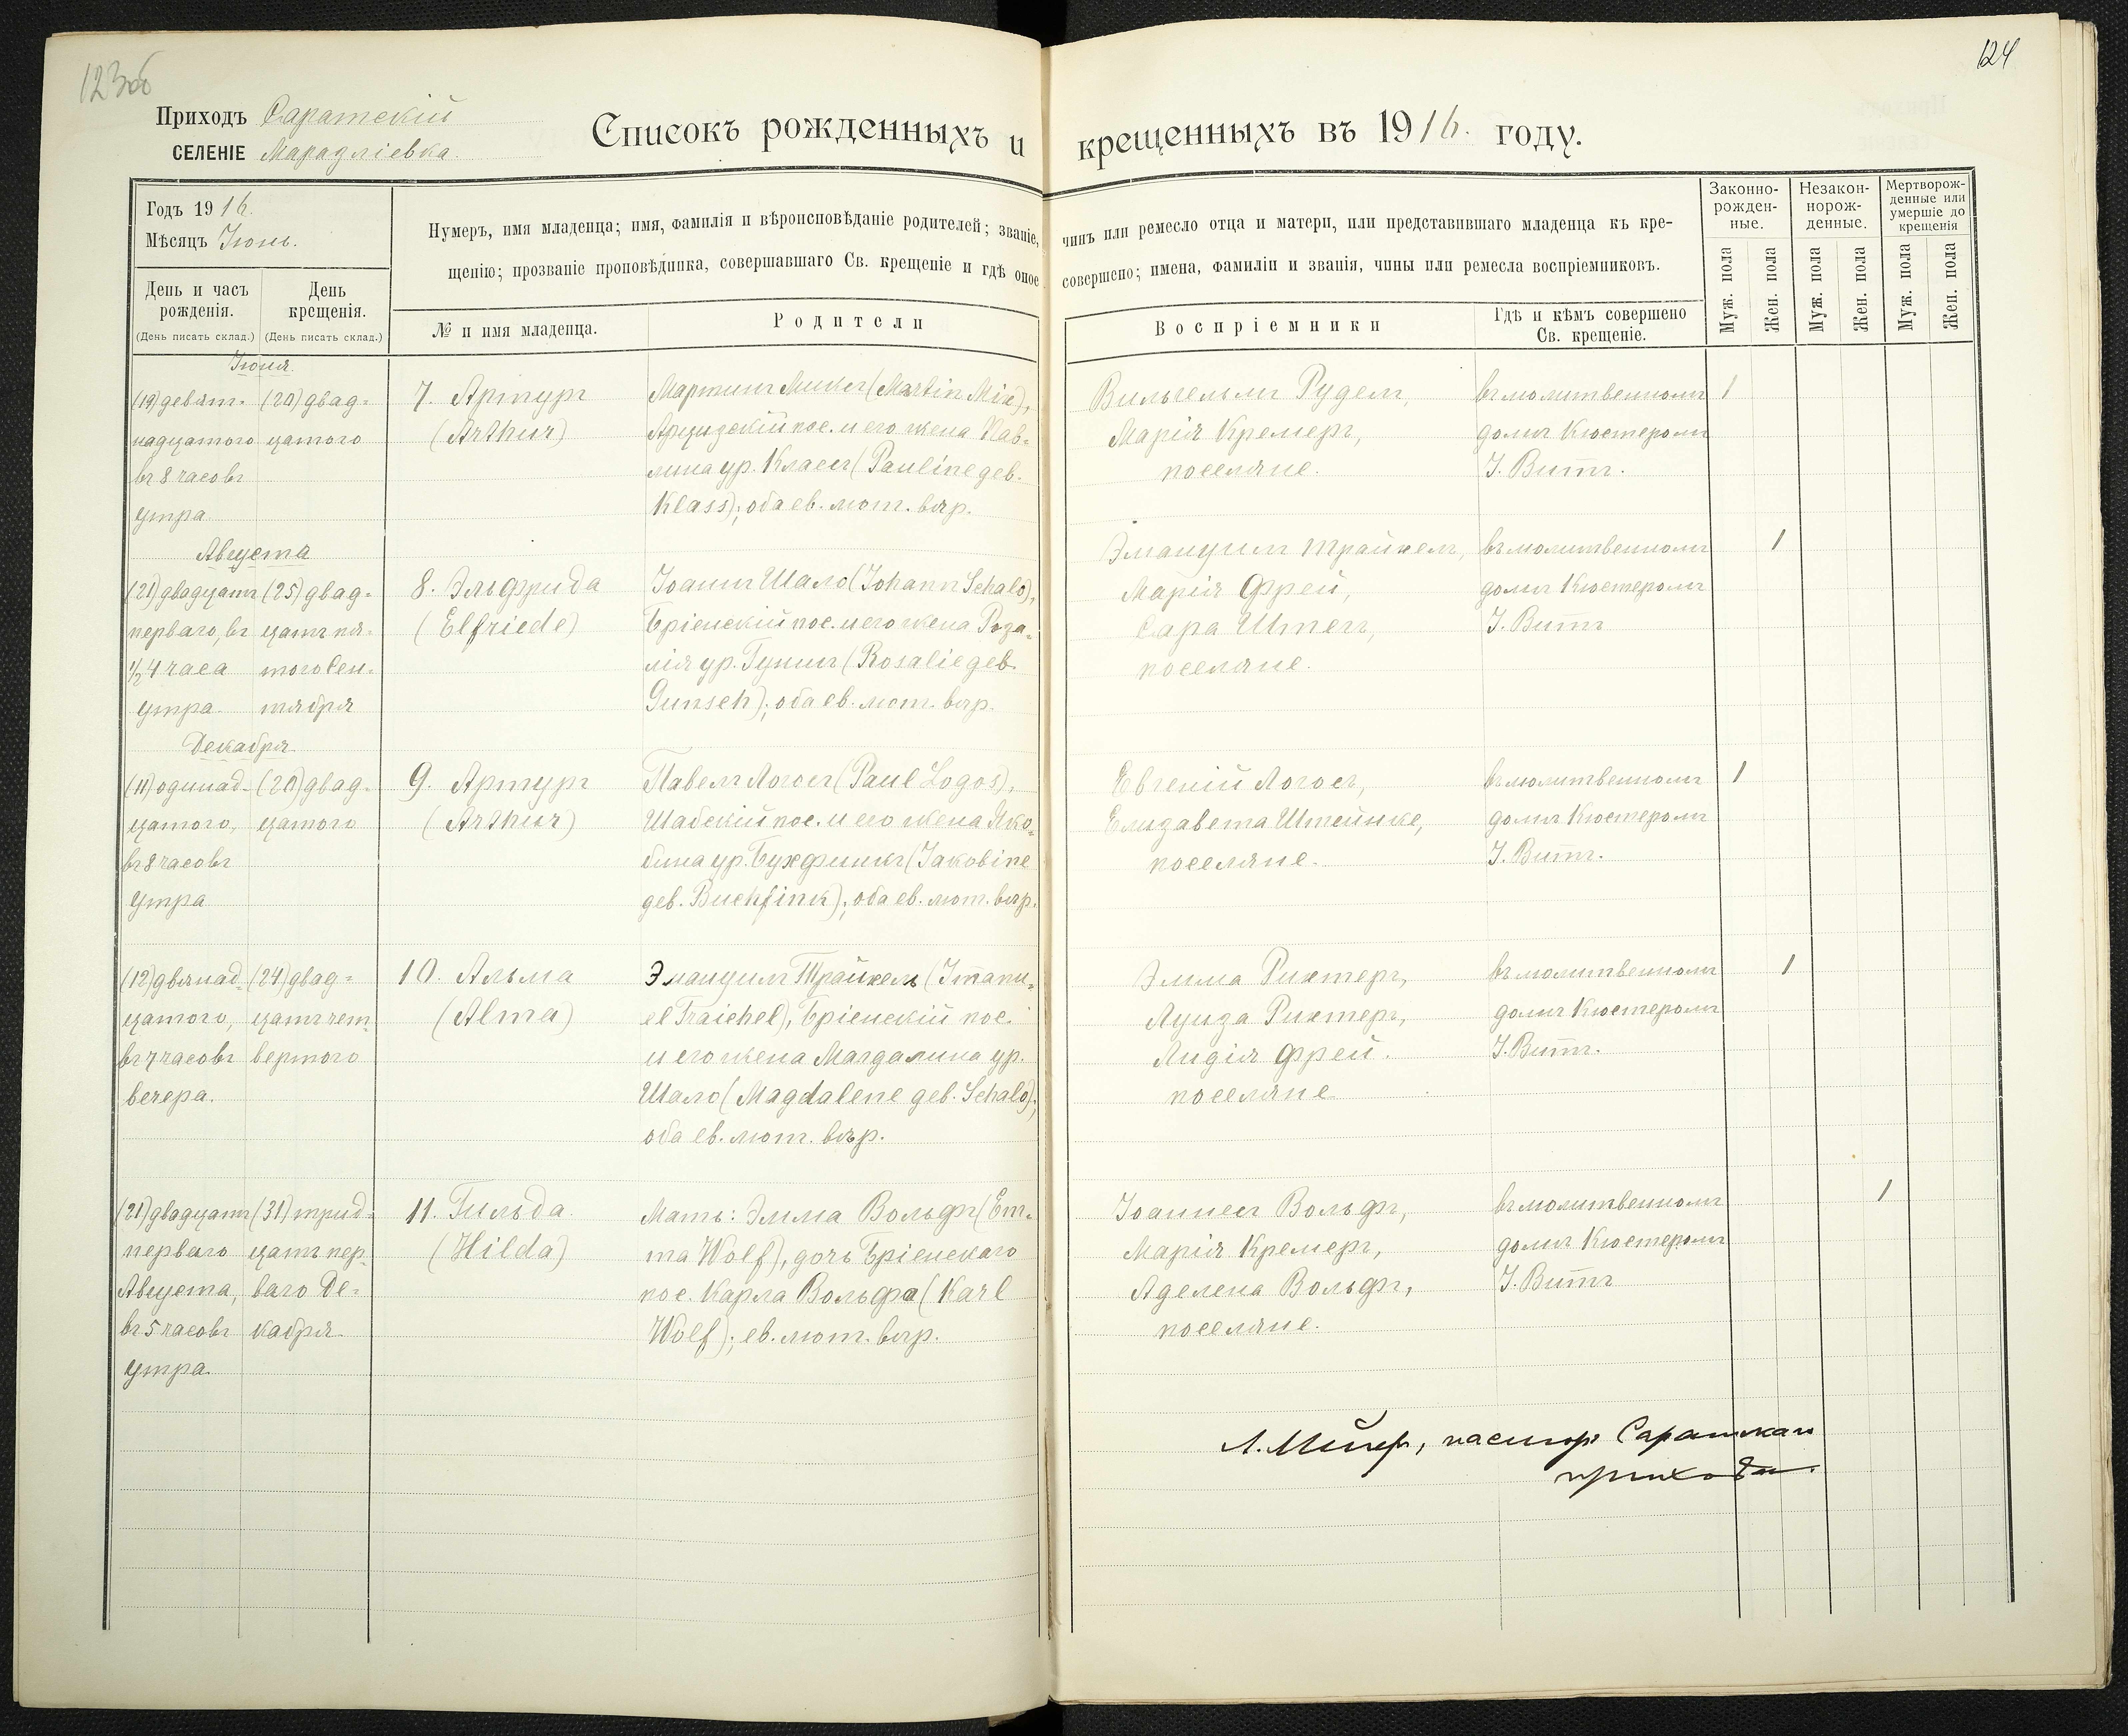 123об
124
Приходъ Саратскій
СЕЛЕНІЕ Маразліевка.
Списокъ рожденныхъ и крещенныхъ въ 1916. году.
Годъ 1916.
Мѣсяцъ Іюнь.
День и часъ рожденія.
(День писать склад.)
День крещенія.
(День писать склад.)
Нумеръ, имя младенца; имя, фамилія и вѣроисповѣданіе родителей; званіе, чинъ или ремесло отца и матери, или представившаго младенца къ кре-
щенію; прозваніе проповѣдника, совершавшаго Св. крещеніе и гдѣ оное совершено; имена, фамиліи и званія, чины или ремесла воспріемниковъ.
№ и имя младенца.
Родители
Воспріемники
Гдѣ и кѣмъ совершено
Св. крещеніе.
Законно-
рожден-
ные.
Незакон-
норож-
денные.
Мертворож-
денные или
умершіе до
крещенія
Муж. пола
Жен. пола
Муж. пола
Жен. пола
Муж. пола
Жен. пола
Іюня.
(19) девят=
надцатого
въ 8 часовъ
утра
(20) двад=
цатого
7. Артуръ
(Arthur)
Мартинъ Миксъ (Martin Mix),
Арцизскій пос. и его жена Пав=
лина ур. Классъ (Pauline geb.
Klass); оба ев. лют. вѣр.
Вильгельмъ Рудель,
Марія Кремеръ,
поселяне.
въ молитвенномъ
домѣ Кюстеромъ
І. Витт.
1
Августа
(21) двадцать
перваго, въ
½4 часа
утра.
(25) двад=
цать пя=
того Сен=
тября
8. Эльфрида
(Elfriede)
Іоаннъ Шало (Johann Schalo),
Бріенскій пос. и его жена Роза=
лія ур. Гуншъ (Rosalie geb.
Gunsch); оба ев. лют. вѣр.
Эмануилъ Трайхель,
Марія Фрей,
Сара Штегъ,
поселяне.
въ молитвенномъ
домѣ Кюстеромъ
І. Витт
1
Декабря
(11) одинад=
цатого,
въ 8 часовъ
утра
(20) двад=
цатого
9. Артуръ
(Arthur)
Павелъ Логосъ (Paul Logos),
Шабскій пос. и его жена Яко=
бина ур. Бухфинкъ (Jakobine
geb. Buchfink); оба ев. лют. вѣр.
Евгеній Логосъ,
Елизавета Штейнке,
поселяне.
въ молитвенномъ
домѣ Кюстеромъ
І. Витт.
1
(12) двѣнад=
цатого,
въ 7 часовъ
вечера.
(24) двад=
цать чет=
вертого
10. Альма
(Alma)
Эмануилъ Трайхель (Imanu=
el Traichel), Бріенскій пос.
и его жена Магдалина ур.
Шало (Magdalene geb. Schalo);
оба ев. лют. вѣр.
Эмма Рихтеръ,
Луиза Рихтеръ,
Лидія Фрей.
поселяне
въ молитвенномъ
домѣ Кюстеромъ
І. Витт.
1
(21) двадцать
перваго
Августа,
въ 5 часовъ
утра.
(31) трид=
цать пер=
ваго Де=
кабря
11. Гильда
(Hilda)
Мать: Эмма Вольфъ (Em=
ma Wolf), дочь Бріенскаго
пос. Карла Вольфа (Karl
Wolf); ев. лют. вѣр.
Іоаннесъ Вольфъ,
Марія Кремеръ,
Аделена Вольфъ,
поселяне.
въ молитвенномъ
домѣ Кюстеромъ
І. Витт
1
Л. Мейеръ, пасторъ Саратскаго
прихода.